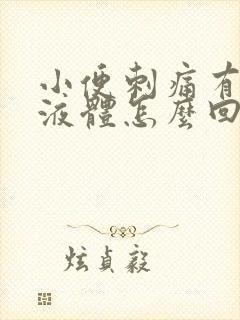 小便刺痛有
液體怎麼回
炫貞毅